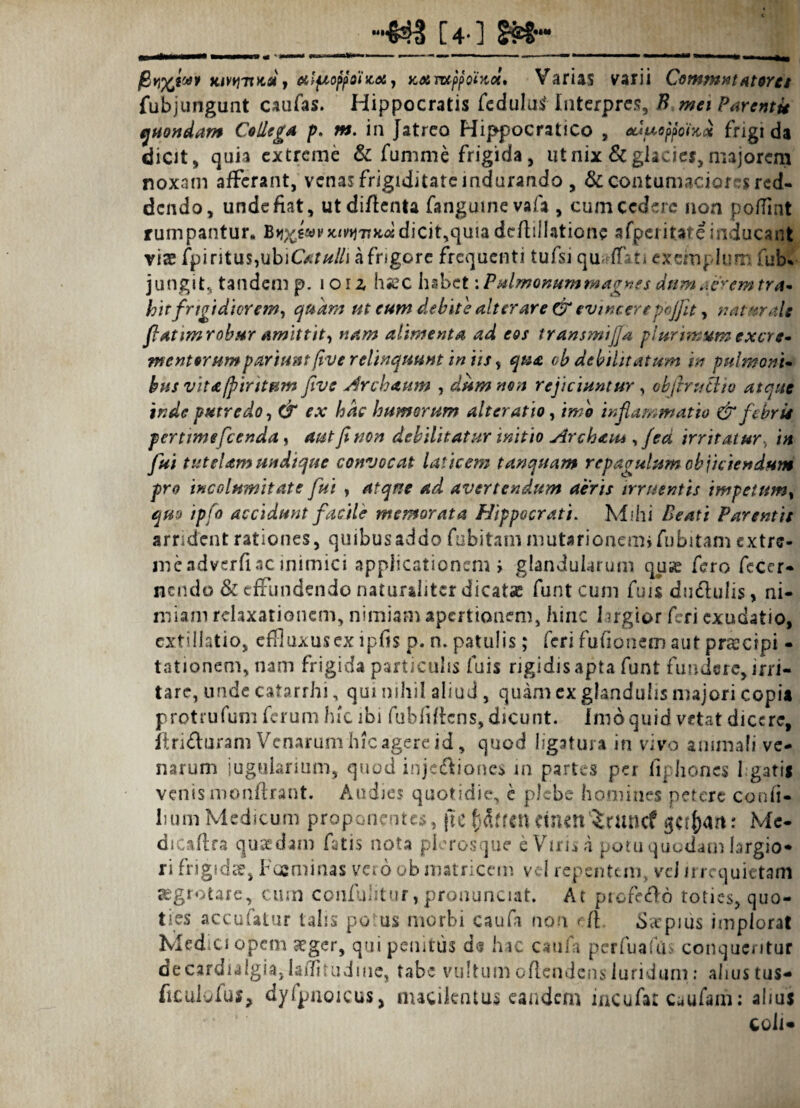 [4.]
βηχέων κινητικὰ, αἱμοῤῥοϊκὰ, καταῤῥοϊκὰ. Varias varii Commentatores
ſubjungunt cauſas. Hippocratis ſedulus Interpres, B. mei Parentis
quondam Collega p. m. in Jatreo Hippocratico, αἱμοῤῥοϊκὰ frigida
dicit, quia extremè & ſummè frigida, ut nix & glacies, majorem
noxam afferant, venas frigiditate indurando, & contumaciores red-
dendo, unde fiat, ut diſtenta ſanguine vaſa, cum cedere non poſſint
rumpantur. Βηχέων κινητικὰ dicit, quia deſtillatione aſperitatē inducant
viæ ſpiritus, ubi Catulli à frigore frequenti tuſsi quaſſati exemplum ſub-
jungit, tandem p. 1012 hæc habet: Pulmonum magnes dum aërem tra-
hit frigidiorem, quàm ut eum debitè alterare & evincere poſſit, naturale
ſtatim robur amittit, nam alimenta ad eos transmiſſa plurimum excre-
mentorum pariunt ſive relinquunt in iis, quæ ob debilitatum in pulmoni-
bus vitæ ſpiritum ſive Archæum, dum non rejiciuntur, obſtructio atque
inde putredo, & ex hâc humorum alteratio, imò inflammatio & febris
pertimeſcenda, aut ſi non debilitatur initio Archæus, ſed irritatur, in
ſui tutelam undique convocat laticem tanquam repagulum objiciendum
pro incolumitate ſui, atque ad avertendum aëris irruentis impetum,
quo ipſo accidunt facilè memorata Hippocrati. Mihi Beati Parentis
arrident rationes, quibus addo ſubitam mutationem, ſubitam extre-
mè adverſi ac inimici applicationem; glandularum quæ ſero ſecer-
nendo & effundendo naturaliter dicatæ ſunt cum ſuis ductulis, ni-
miam relaxationem, nimiam apertionem, hinc largior ſeri exudatio,
extillatio, effluxus ex ipſis p. n. patulis; ſeri fuſionem aut præcipi-
tationem, nam frigida particulis ſuis rigidis apta ſunt fundere, irri-
tare, unde catarrhi, qui nihil aliud, quàm ex glandulis majori copia
protruſum ſerum hîc ibi ſubſiſtens, dicunt. Imò quid vetat dicere,
ſtricturam Venarum hîc agere id, quod ligatura in vivo animali ve-
narum jugularium, quod injectiones in partes per ſiphones ligatis
venis monſtrant. Audies quotidie, è plebe homines petere conſi-
lium Medicum proponentes, ſie hätten einen Trunck gethan: Me-
dicaſtra quædam ſatis nota plerosque è Viris à potu quodam largio-
ri frigidæ, Fœminas verò ob matricem vel repentem, vel irrequietam
ægrotare, cum conſulitur, pronunciat. At profectò toties, quo-
ties accuſatur talis potus morbi cauſa non eſt. Sæpius implorat
Medici opem æger, qui penitùs de hac cauſa perſuaſus conqueritur
de cardialgia, laſſitudine, tabe vultum oſtendens luridum: alius tus-
ſiculoſus, dyſpnoicus, macilentus eandem incuſat cauſam: alius
coli-